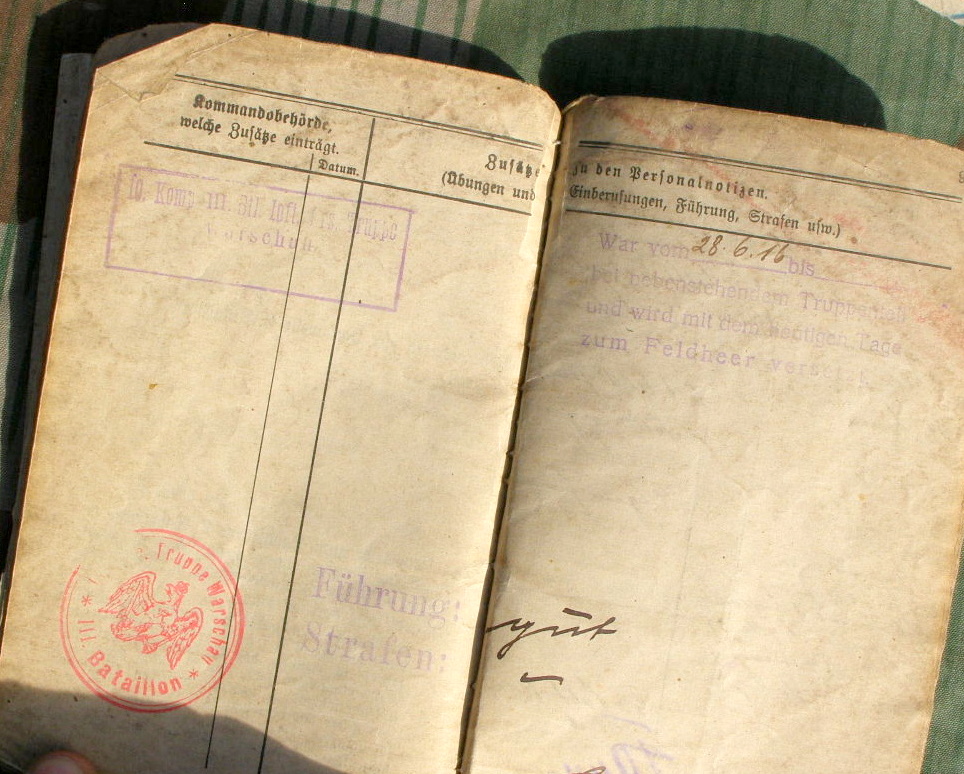 Kommandobehörde,
welche Zusätze einträgt.
Datum.
Zusätze
(Übungen und
10. Komp. III. Btl. Inft. Ers. Truppe
Warschau.
Führung:
Strafen:
Truppe Warschau
* III. Bataillon *
zu den Personalnotizen.
Einberufungen, Führung, Strafen usw.)
War vom 28.6.16 bis
bei nebenstehendem Truppenteil
und wird mit dem heutigen Tage
zum Feldheer versetzt.
gut
—